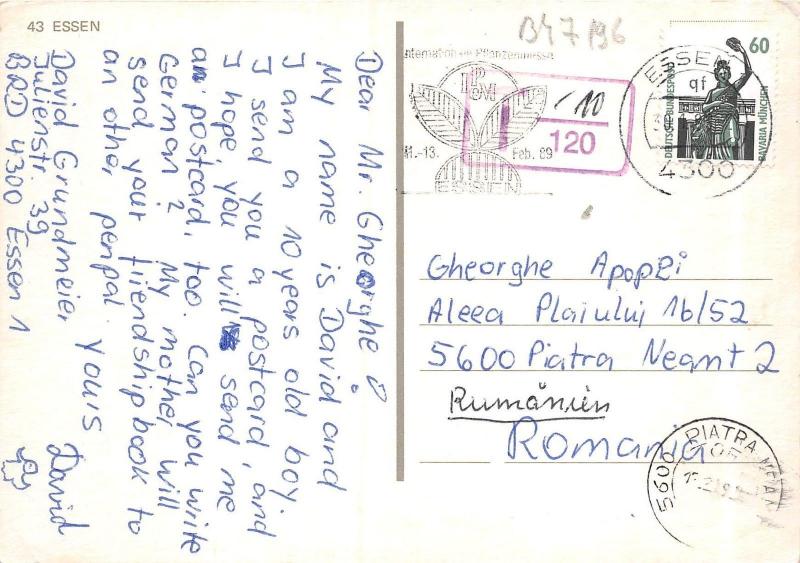 43 ESSEN
David Grundmeier
Julienstr. 39
BRD 4300 Essen 1
Dear Mr. Gheorghe!
My name is David and
I am a 10 years old boy.
I send you a postcard, and
I hope, you will send me
an postcard, too. Can you write
German? My mother will
send your friendship book to
an other penpal.
yours
David
B47 196
Internationale Pflanzenmesse
IPM
-10
120
11.-13. Feb. 89
ESSEN
ESSEN
qf
4300
60
DEUTSCHE BUNDESPOST
BAVARIA MÜNCHEN
Gheorghe Apopei
Aleea Plaiului 16/52
5600 Piatra Neamt 2
Rumänien
Romania
5600 PIATRA NEAMT